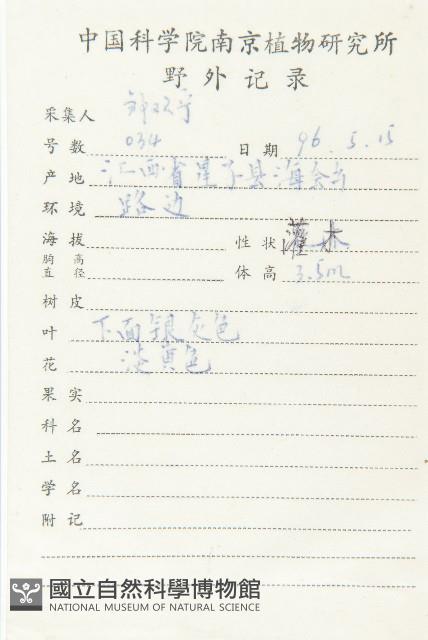 中国科学院南京植物研究所
野外记录
采集人
号数 034 日期 96.5.15
产地 江西省星子县海会
环境 路边
海拔 性状 灌木
胸高直径 体高 3.5m
树皮
叶 下面银灰色
花 淡黄色
果实
科名
土名
学名
附记
國立自然科學博物館
NATIONAL MUSEUM OF NATURAL SCIENCE